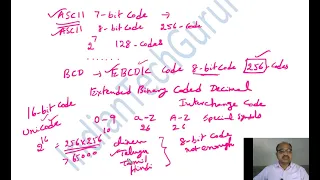 ✓ASCII 7-bit code
✓ASCII 8-bit code 256-code
2^7 128-codes
BCD → EBCDIC code 8-bit code 256-codes
Extended Binary Coded Decimal
Interchange Code
16-bit code
Unicode
0-9 a-z A-Z Special Symbols
10 26 26
2^16
= 256×256
> 65000
chinese
Telugu
Tamil
Hindi
8-bit Code
not enough
IndianTechGuru